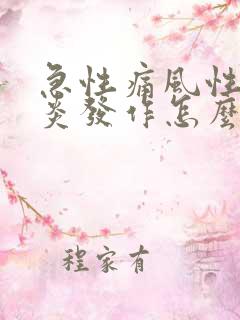 急性痛風性
炎發作怎麼
程家有